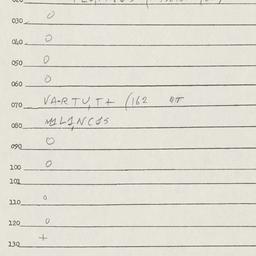 030 0
040 0
050 0
060 0
070 VA-RTU,T+ (162
080 M1L1,NC1S
090 0
100 0
101
110 0
120 0
130 +